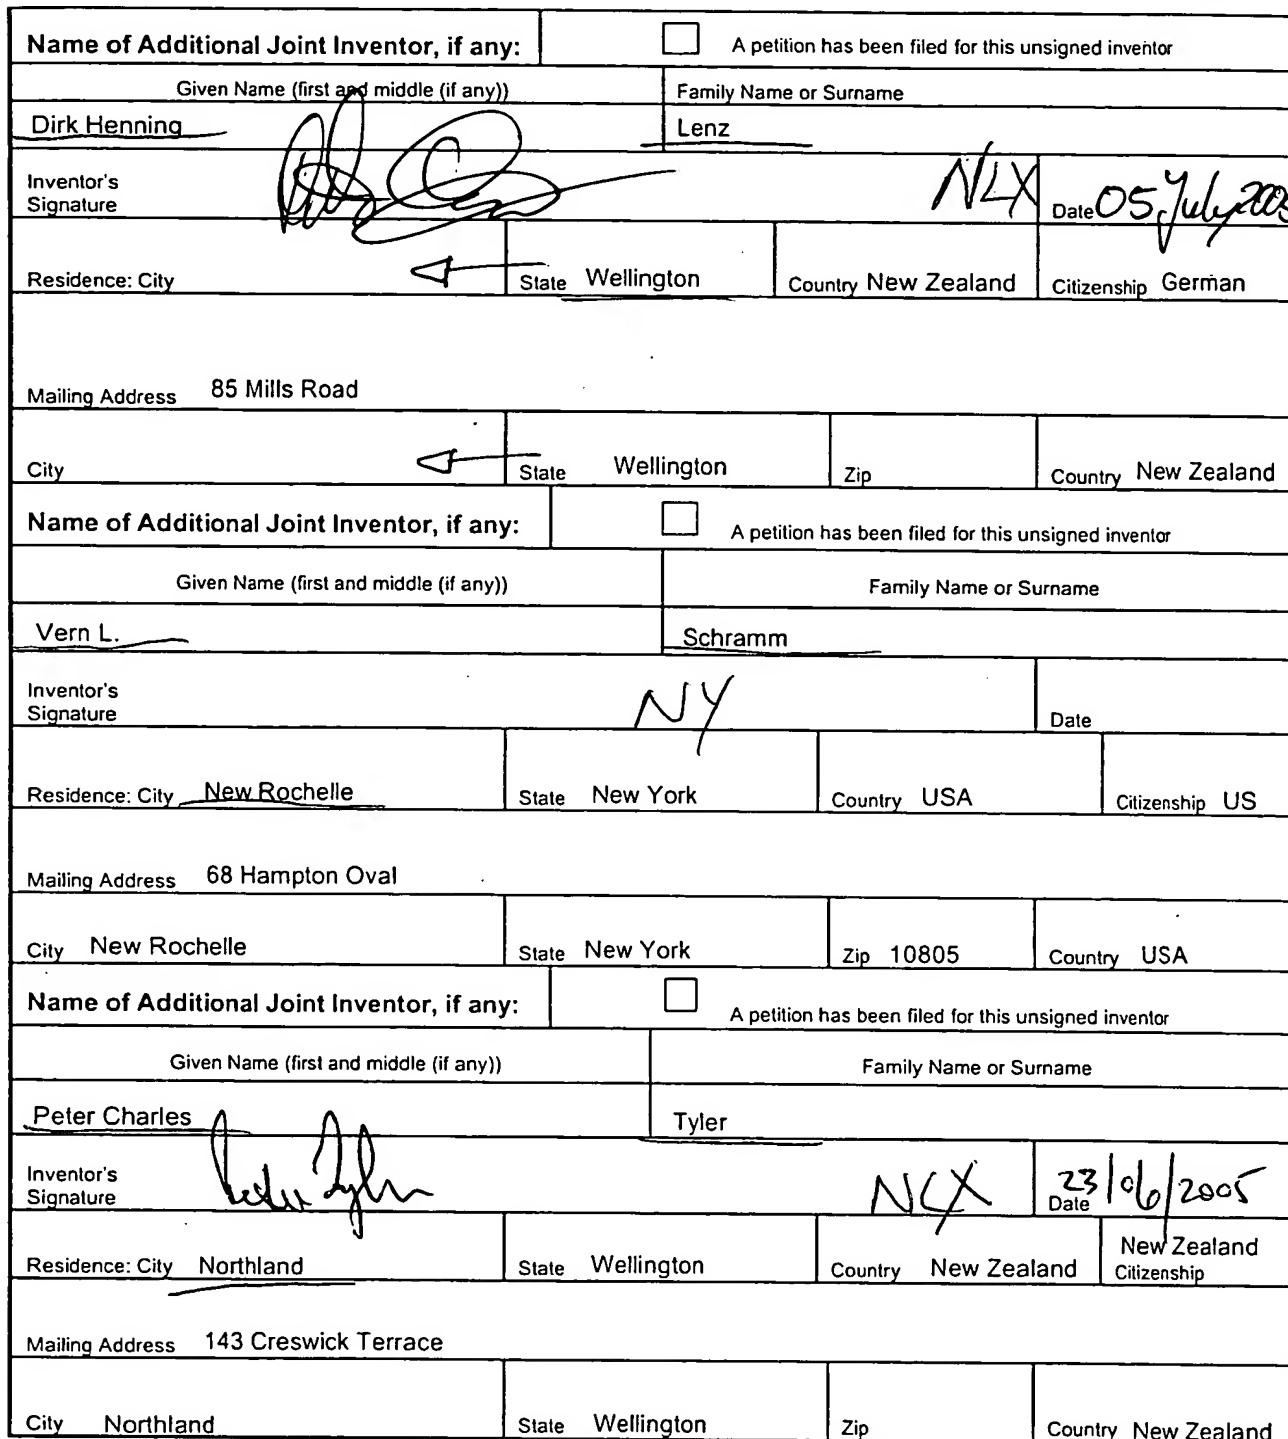 Name of Additional Joint Inventor, if any: A petition has been filed for this unsigned inventor
Given Name (first and middle (if any)) Family Name or Surname
Dirk Henning Lenz
Inventor's
Signature NLX Date 05 July 2005
Residence: City State Wellington Country New Zealand Citizenship German
Mailing Address 85 Mills Road
City State Wellington Zip Country New Zealand
Name of Additional Joint Inventor, if any: A petition has been filed for this unsigned inventor
Given Name (first and middle (if any)) Family Name or Surname
Vern L. Schramm
Inventor's
Signature NY Date
Residence: City New Rochelle State New York Country USA Citizenship US
Mailing Address 68 Hampton Oval
City New Rochelle State New York Zip 10805 Country USA
Name of Additional Joint Inventor, if any: A petition has been filed for this unsigned inventor
Given Name (first and middle (if any)) Family Name or Surname
Peter Charles Tyler
Inventor's
Signature Peter Tyler NLX Date 23/06/2005
Residence: City Northland State Wellington Country New Zealand New Zealand
Citizenship
Mailing Address 143 Creswick Terrace
City Northland State Wellington Zip Country New Zealand